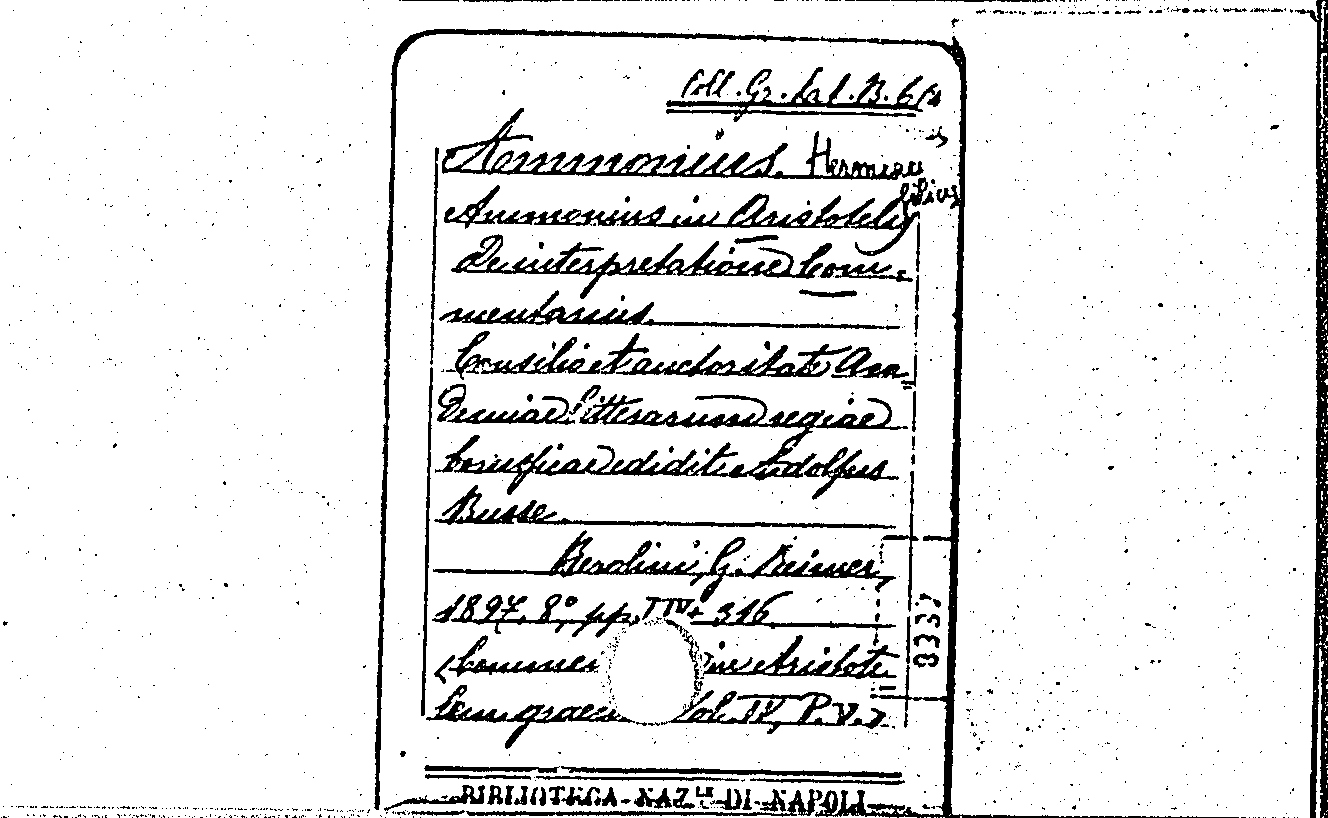 Coll. Gr. Lat. B. 6/2
Ammonius. Hermiae
filius
Ammonius in Aristotelis
De interpretatione Com-
mentarius.
Consilio et auctoritate Aca
demiae litterarum regiae
borussicae edidit Adolfus
Busse.
Berolini, G. Reimer,
1897, 8°, pp. LIV+316
(Commen in Aristote
lem graeca Vol. IV, P. V.)
8337
BIBLIOTECA NAZ.LE DI NAPOLI